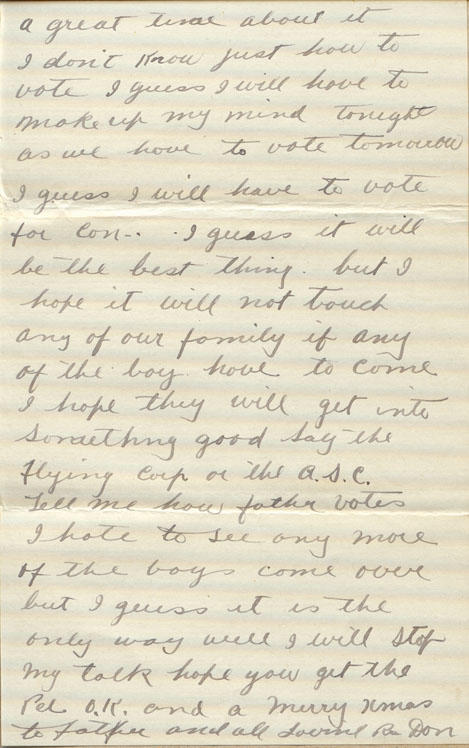 a great time about it
I don't know just how to
vote I guess I will have to
make up my mind tonight
as we have to vote tomorrow
I guess I will have to vote
for Con-. . I guess it will
be the best thing. but I
hope it will not touch
any of our family if any
of the boy. have to come
I hope they will get into
something good say the
Flying Corp or the A.S.C.
Tell me how father votes
I hate to see any more
of the boys come over
but I guess it is the
only way well I will stop
my talk hope you get the
Pcl O.K. and a Merry Xmas
to father and all Don